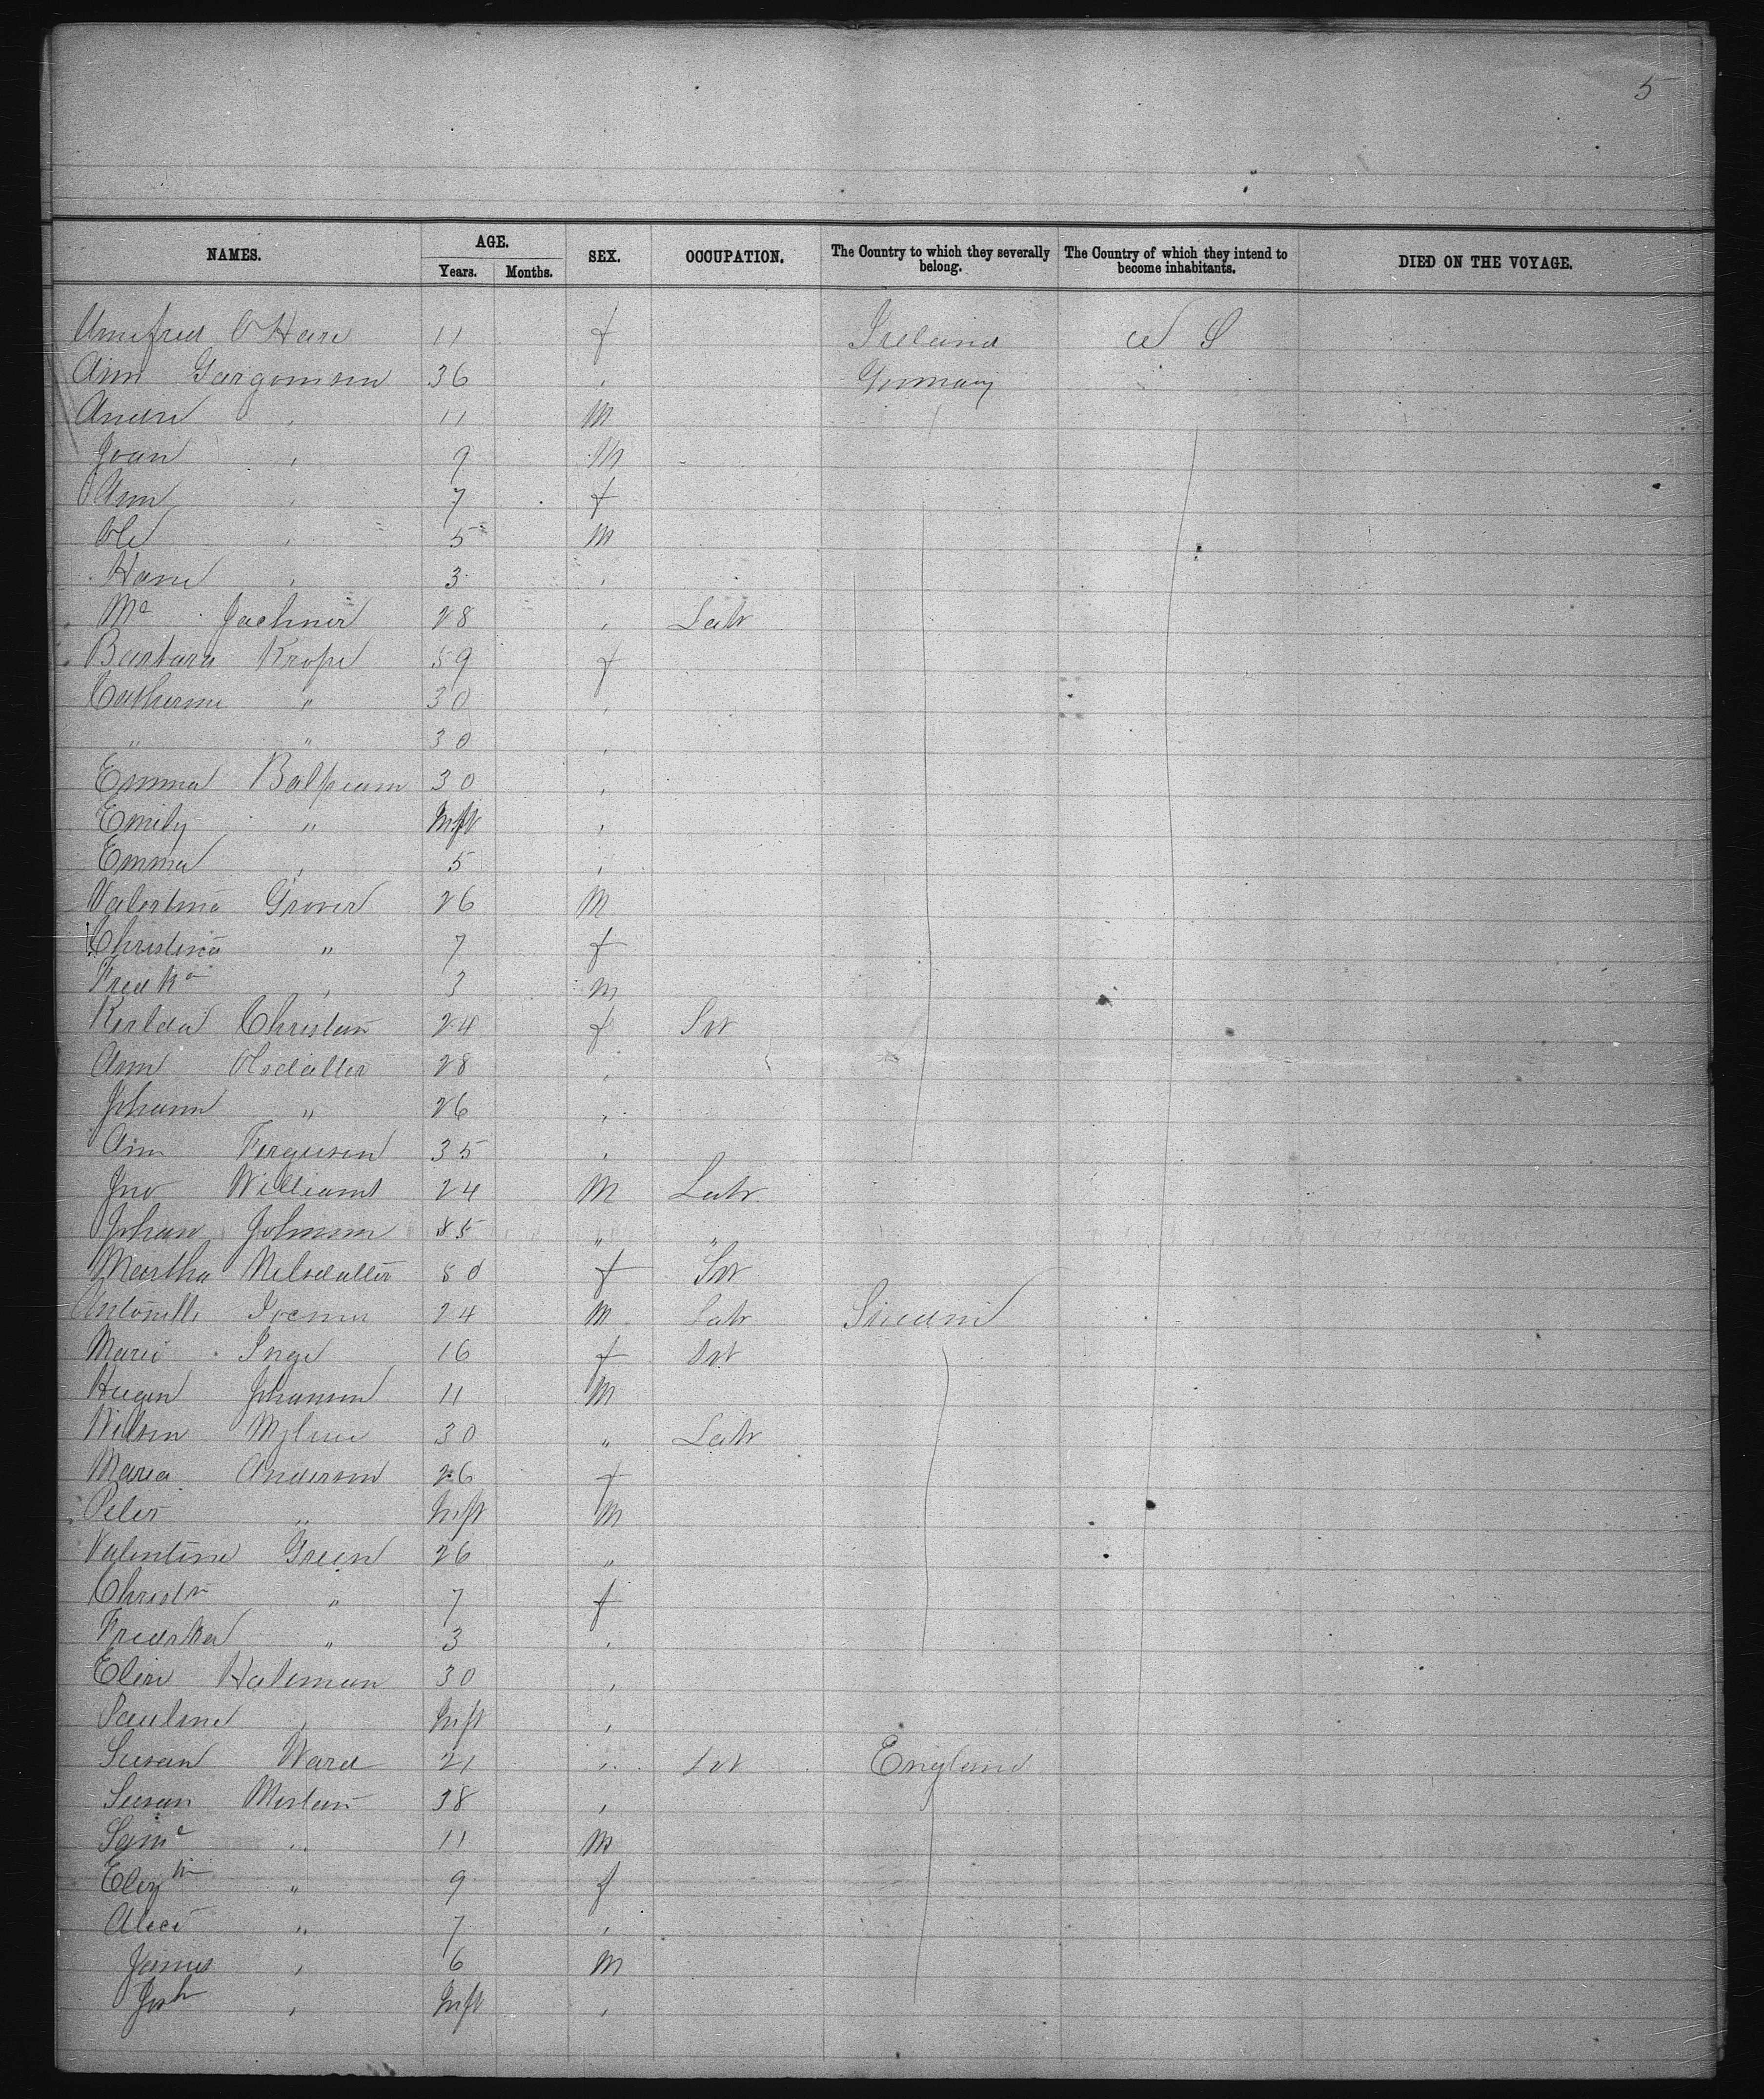 5
NAMES. AGE. SEX. OCCUPATION. The Country to which they severally belong. The Country of which they intend to become inhabitants. DIED ON THE VOYAGE.
Years. Months.
O'Hare 11 f Ireland U S
Ann 36 , Germany
Andre , 11 M
Joan , 9 M
Ann , 7 f
Ole , 5 M
Hans , 3 ,
28 , Labr
Barbara Krope 59 f
Catherine " 30 ,
" " 30 ,
Emma 30 ,
Emily " Inft ,
Emma , 5 ,
Valentine Grover 26 M
Christina " 7 f
Fredka , 3 m
Christian 24 f Svt
Ann Olsdatter 28 ,
Johann " 26 ,
Ann Ferguson 35 ,
Jno Williams 24 M Labr
Johan Johnson 35 " "
Martha Nilsdatter 50 f Svt
24 M Labr
Marie Inge 16 f Svt
Johanson 11 M
30 " Labr
Maria Anderson 26 f
Peter " Inft M
Valentine Green 26 "
Christn " 7 f
Fredrka " 3 ,
30 ,
Pauline , Inft ,
Susan Ward 21 " Svt England
Susan 38 ,
Saml " 11 M
Elizth " 9 f
Alice " 7 ,
James , 6 M
Josh , Inft ,